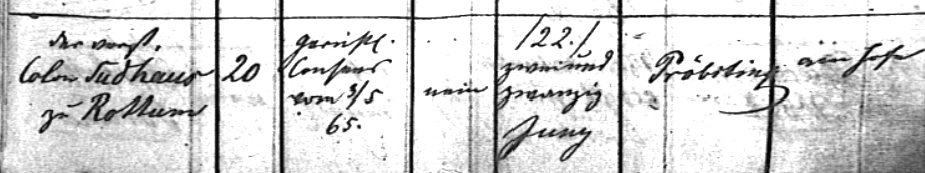 der verst.
Colon Sudhaus
zu Rottum
20
gerichtl.
Consens
vom 3/5
65.
nein
/22./
zwei und
zwanzig
Juny
Pröbsting